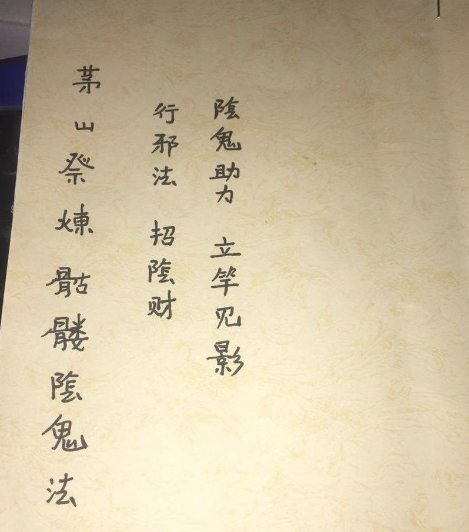 陰鬼助力 立竿见影
行邪法 招陰财
茅山祭煉骷髅陰鬼法